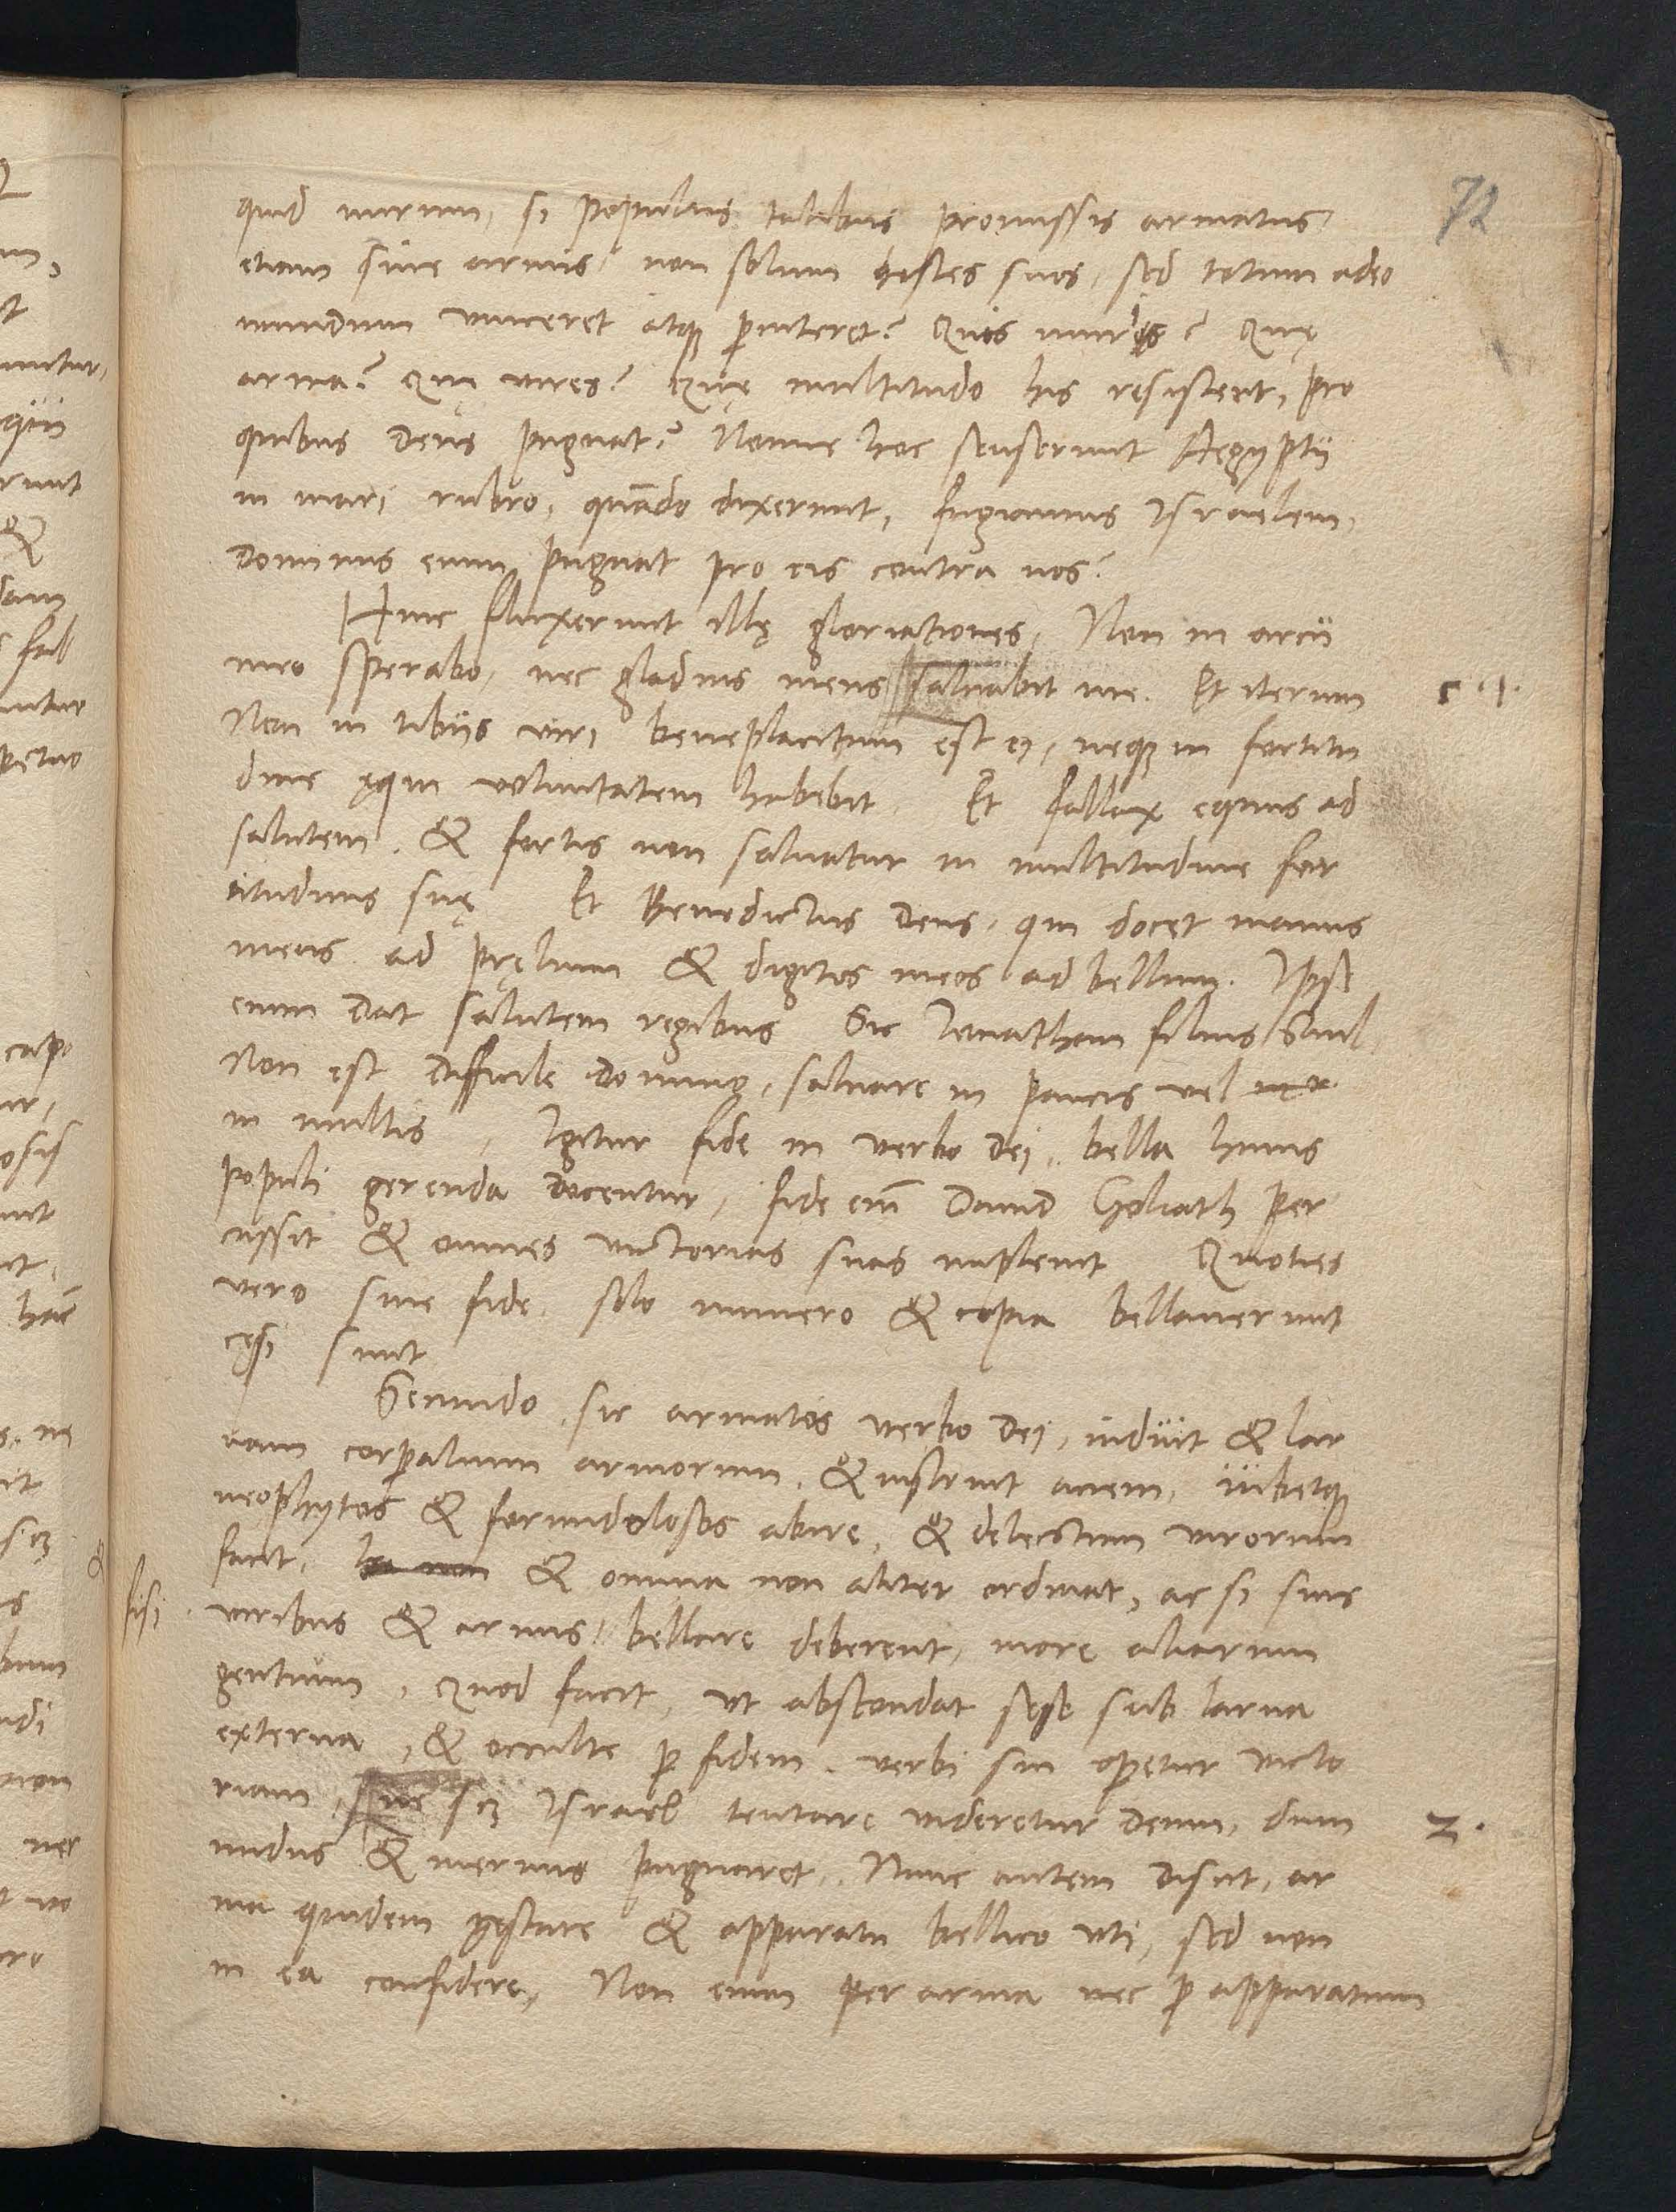 72
quid mirum, si populus talibus promissis armatus
etiam sine armis, non solum hostes suos, sed totum adeo
mundum vinceret atque perniteret? Quis murus? Quę
arma? Quę vires? Quę multitudo his resistent, pro
quibus Deus pugnat? Nonne hoc senserunt Aegyptii
in mari rubro, quãdo dixerunt, fugiamus Israelem,
Dominus enim pugnat pro eis contra nos?
Hinc fluxerunt illę gloriationes, Non in arcu
meo sperabo, nec gladius meus saluabit me. Et iterum
Non in tibiis viri beneplacitum est ei, neque in fortitu
dine equi voluntatem habebit. Et fallax equus ad
salutem. & fortis non saluatur in multitudine for
titudinis suę Et Benedictus Deus, qui docet manus
meas ad pręlium & digitos meos ad bellum. Ipse
enim Dat salutem regibus Sic Ionathan filius Saul
Non est difficile domino, saluare in paucis vel
in multis, Igitur fide in verbo Dei, bella huius
populi gerenda docentur, fide em̃ Dauid Goliath per
cussit & omnes victorias suas impleuit Quoties
vero sine fide, solo numero & copia bellauerunt
cęsi sunt
Secundo, sic armatos verbo Dei, induit & lar
uam corporalium armorum, & instruit aciem, iubetque
neophytos & formidolosos abire, & delectum virorum
facit, & omnia non aliter ordinat, ac si suis
fisi
viribus & armis, bellare deberent, more aliarum
gentium, Quod facit, vt abscondat sese sub larua
externa, & occulte per fidem verbi sui operetur victo
riam, sic scilicet Israel tentare videretur Deum, dum
2.
nudus & inermis pugnaret, Nunc autem discit, ar
ma quidem gestare & apparatu bellico vti, sed non
in ea confidere, Non enim per arma nec per apparatum